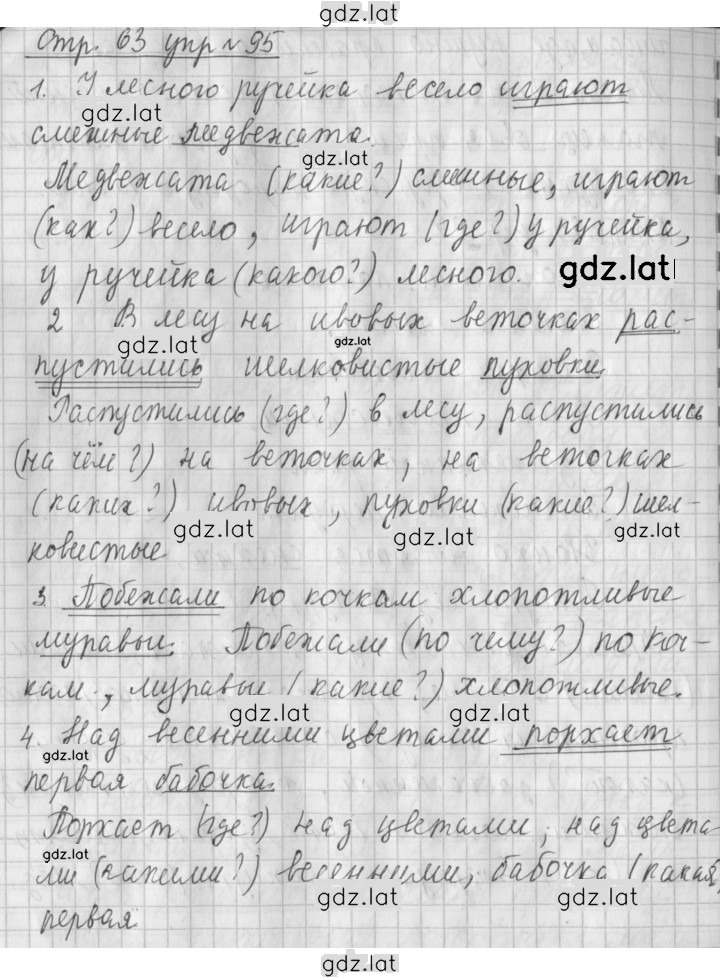 gdz.lat
Стр. 63 упр № 95
1. У лесного ручейка весело играют
gdz.lat
смешные медвежата.
gdz.lat
Медвежата (какие?) смешные, играют
(как?) весело, играют (где?) у ручейка,
у ручейка (какого?) лесного.
gdz.lat
2 В лесу на ивовых веточках рас-
gdz.lat gdz.lat
пустились шелковистые пуховки.
Распустились (где?) в лесу, распустились
(на чём?) на веточках, на веточках
(каких?) ивовых, пуховки (какие?) шел-
gdz.lat gdz.lat gdz.lat
ковистые
3. Побежали по кочкам хлопотливые
муравьи. Побежали (по чему?) по коч-
кам, муравьи (какие?) хлопотливые.
gdz.lat gdz.lat
4. Над весенними цветами порхает
gdz.lat
первая бабочка.
Порхает (где?) над цветами, над цвета
gdz.lat
ми (какими?) весенними, бабочка (какая?)
gdz.lat gdz.lat
первая
gdz.lat